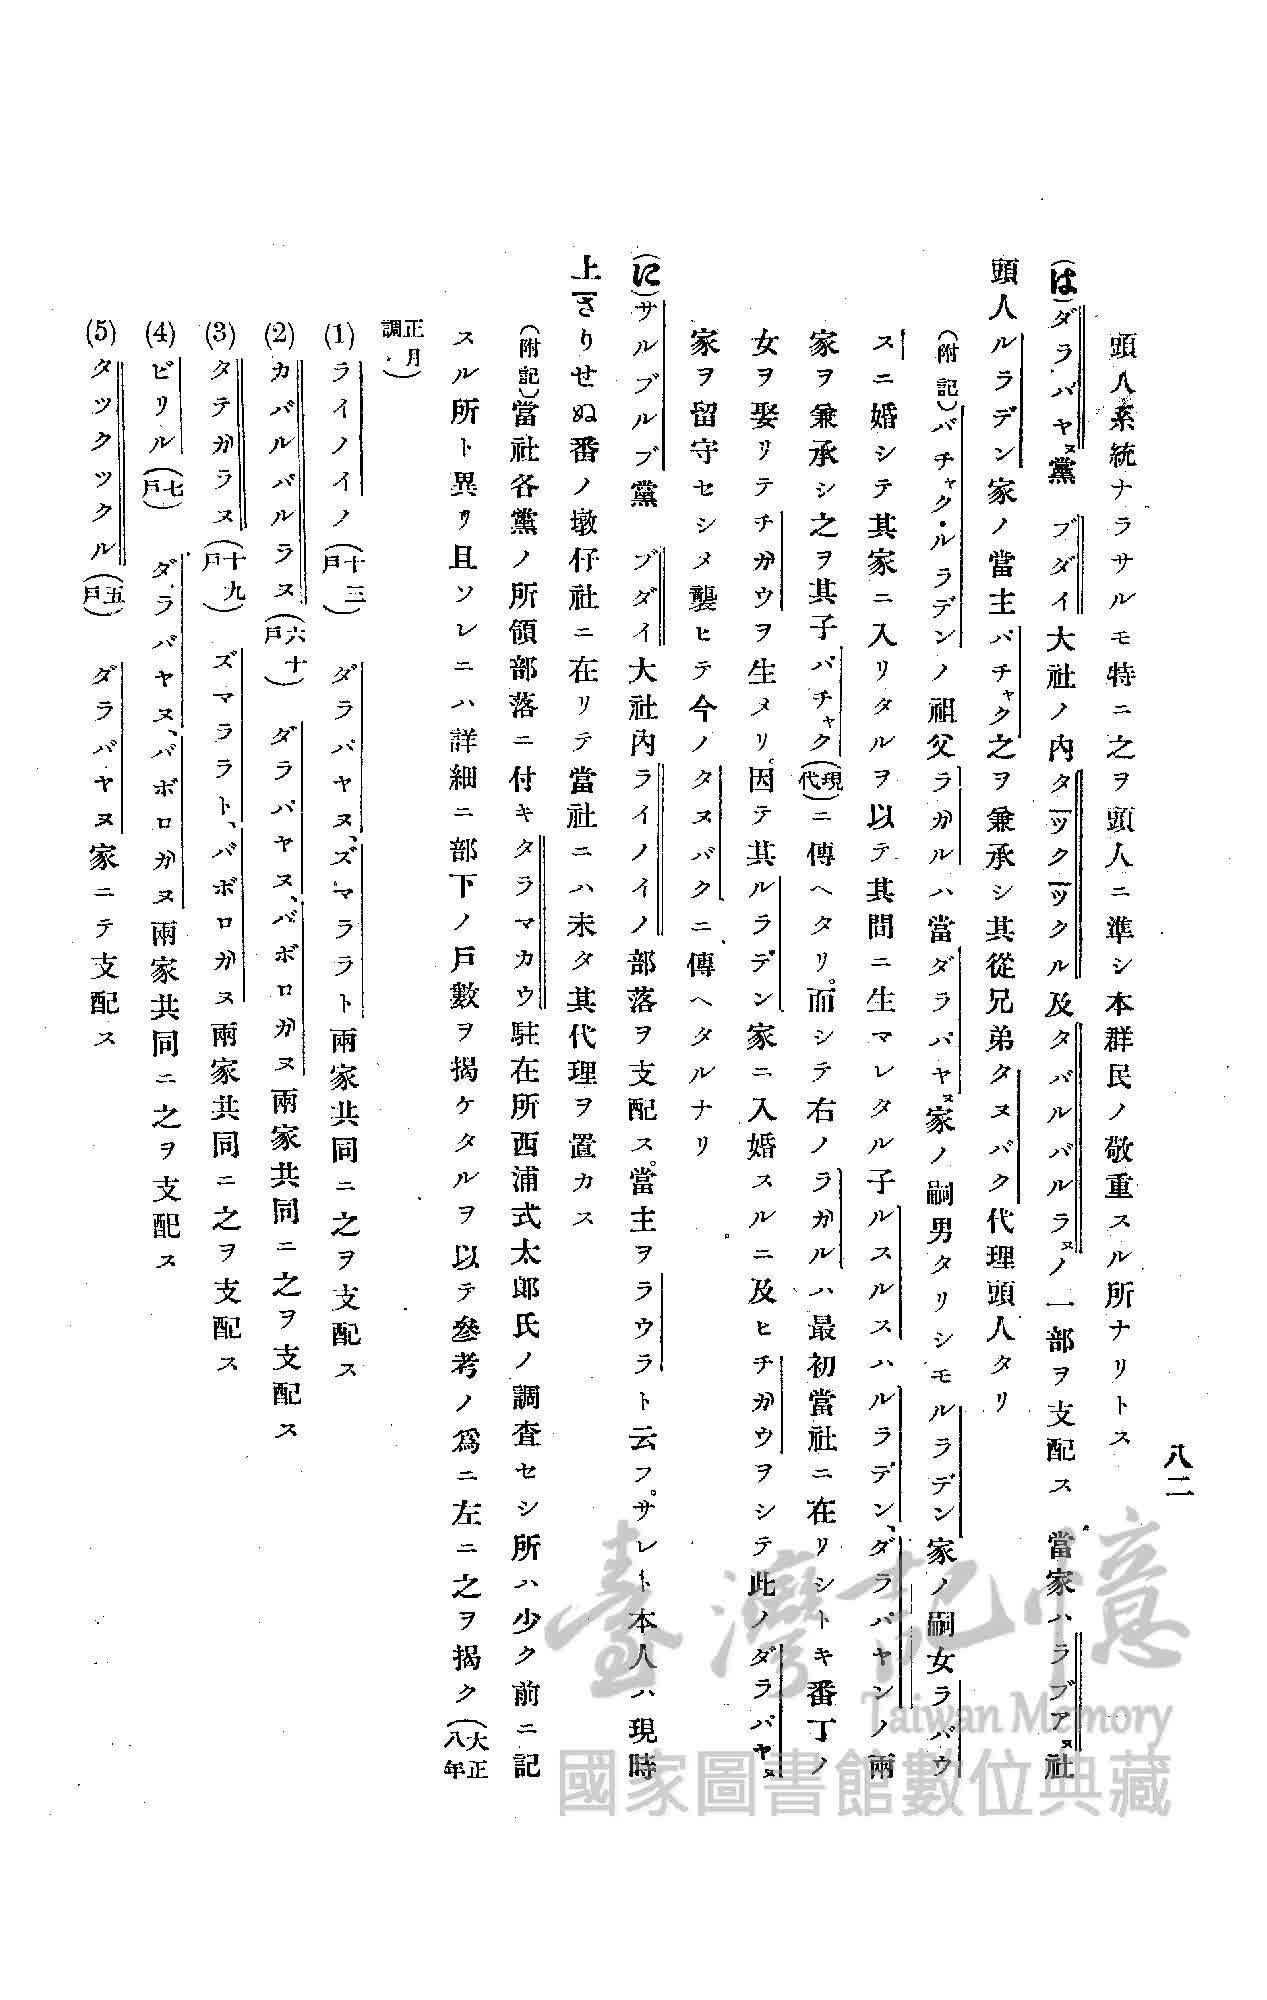 八二
頭人系統ナラサルモ特ニ之ヲ頭人ニ準シ本群民ノ敬重スル所ナリトス
(は)ダラバヤヌ黨 ブダイ大社ノ內タックックル及タバルバルラヌノ一部ヲ支配ス 當家ハラブアヌ社
頭人ルラデン家ノ當主バチャク之ヲ兼承シ其從兄弟タヌバク代理頭人タリ
(附記)バチャク・ルラデンノ祖父ラガルハ當ダラバヤヌ家ノ嗣男タリシモルラデン家ノ嗣女ラバウ
スニ婚シテ其家ニ入リタルヲ以テ其間ニ生マレタル子ルスルスハルラデン、ダラバヤンノ兩
家ヲ兼承シ之ヲ其子バチャク(現代)ニ傳ヘタリ。而シテ右ノラガルハ最初當社ニ在リシトキ番丁ノ
女ヲ娶リテチガウヲ生メリ。因テ其ルラデン家ニ入婚スルニ及ヒチガウヲシテ此ノダラバヤヌ
家ヲ留守セシメ襲ヒテ今ノタヌバクニ傳ヘタルナリ
(に)サルブルブ黨 ブダイ大社內ライノイノ部落ヲ支配ス。當主ヲラウラト云フ。サレト本人ハ現時
上さりせぬ番ノ墩仔社ニ在リテ當社ニハ未タ其代理ヲ置カス
(附記)當社各黨ノ所領部落ニ付キタラマカウ駐在所西浦式太郎氏ノ調査セシ所ハ少ク前ニ記
スル所ト異リ且ソレニハ詳細ニ部下ノ戶數ヲ揭ケタルヲ以テ參考ノ爲ニ左ニ之ヲ揭ク(大正八年
正月調)
(1) ライノイノ(十三戶) ダラバヤヌ、ズマララト兩家共同ニ之ヲ支配ス
(2) カバルバルラヌ(六十戶) ダラバヤヌ、バボロガヌ兩家共同ニ之ヲ支配ス
(3) タテガラヌ(十九戶) ズマララト、バボロガヌ兩家共同ニ之ヲ支配ス
(4) ビリル(七戶) ダラバヤヌ、バボロガヌ兩家共同ニ之ヲ支配ス
(5) タックツクル(五戶) ダラバヤヌ家ニテ支配ス
臺灣記憶
Taiwan Memory
國家圖書館數位典藏